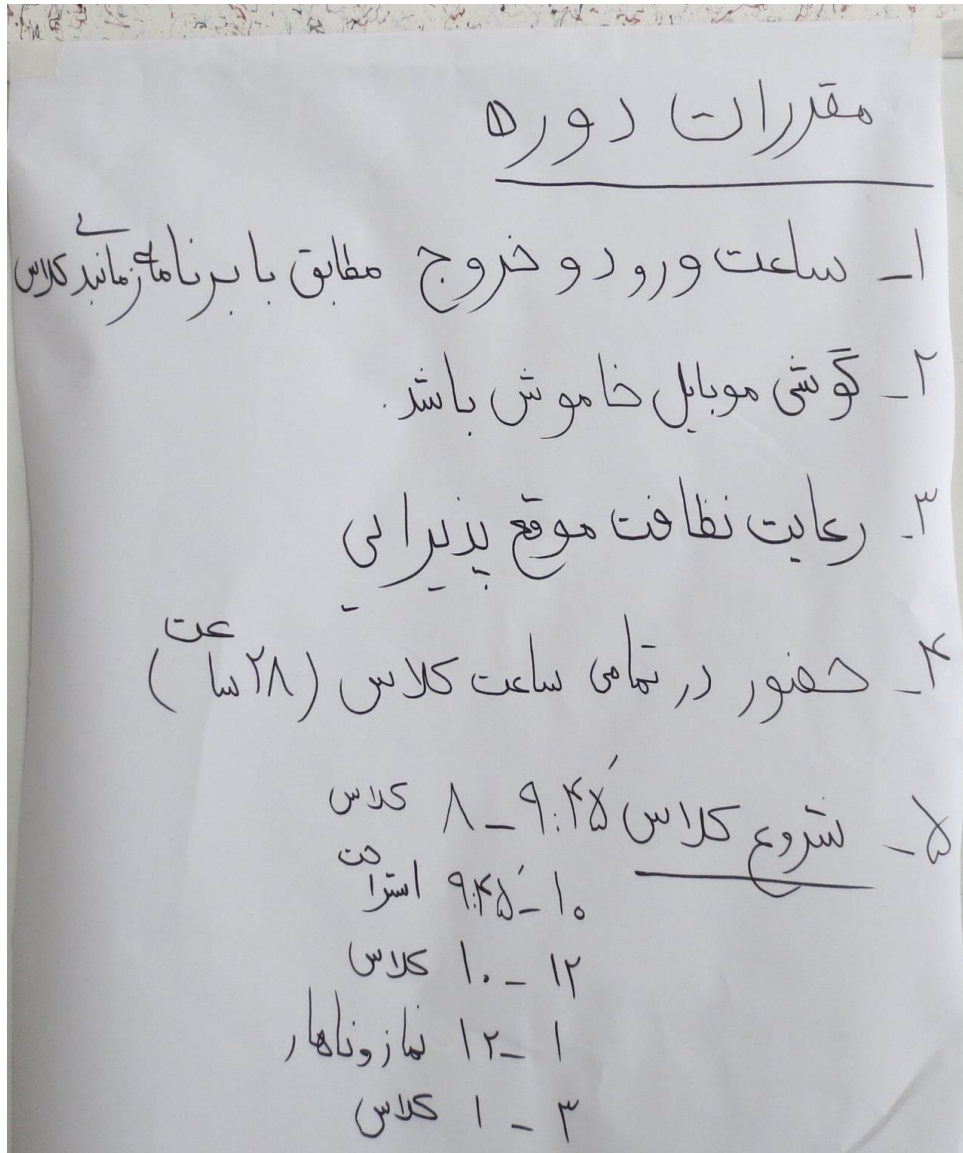 مقررات دوره
۱- ساعت ورود و خروج مطابق با برنامه زمانبندی کلاس
۲- گوشی موبایل خاموش باشد.
۳- رعایت نظافت موقع پذیرایی
۴- حضور در تمامی ساعت کلاس (۲۸ ساعت)
۵- شروع کلاس ۹:۴۵ - ۸ کلاس
۱۰ - ۹:۴۵ استراحت
۱۲ - ۱۰ کلاس
۱ - ۱۲ نماز و ناهار
۳ - ۱ کلاس